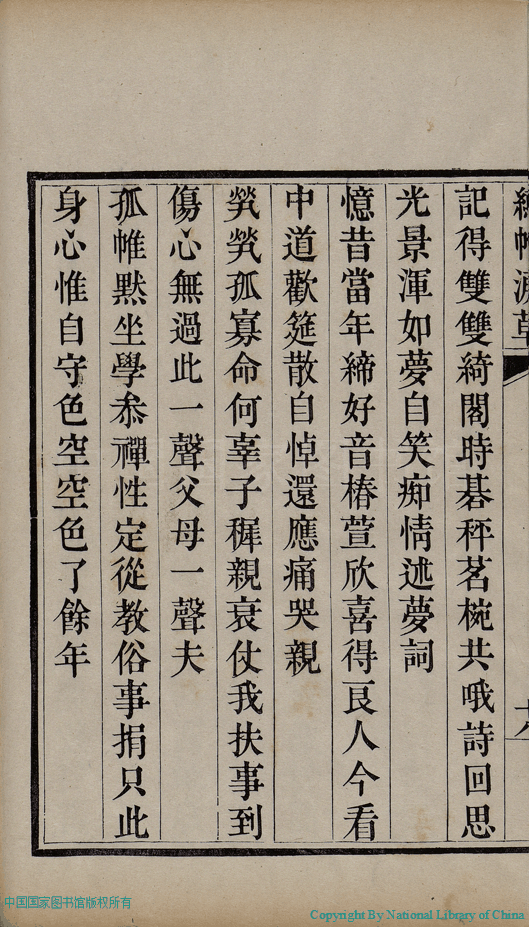 記得雙雙綺閣時碁秤茗椀共哦詩回思
光景渾如夢自笑痴情述夢詞
憶昔當年締好音椿萱欣喜得良人今看
中道歡筵散自悼還應痛哭親
煢煢孤寡命何辜子穉親衰仗我扶事到
傷心無過此一聲父母一聲夫
孤帷默坐學叅禪性定從教俗事捐只此
身心惟自守色空空色了餘年
中国国家图书馆版权所有
Copyright By National Library of China